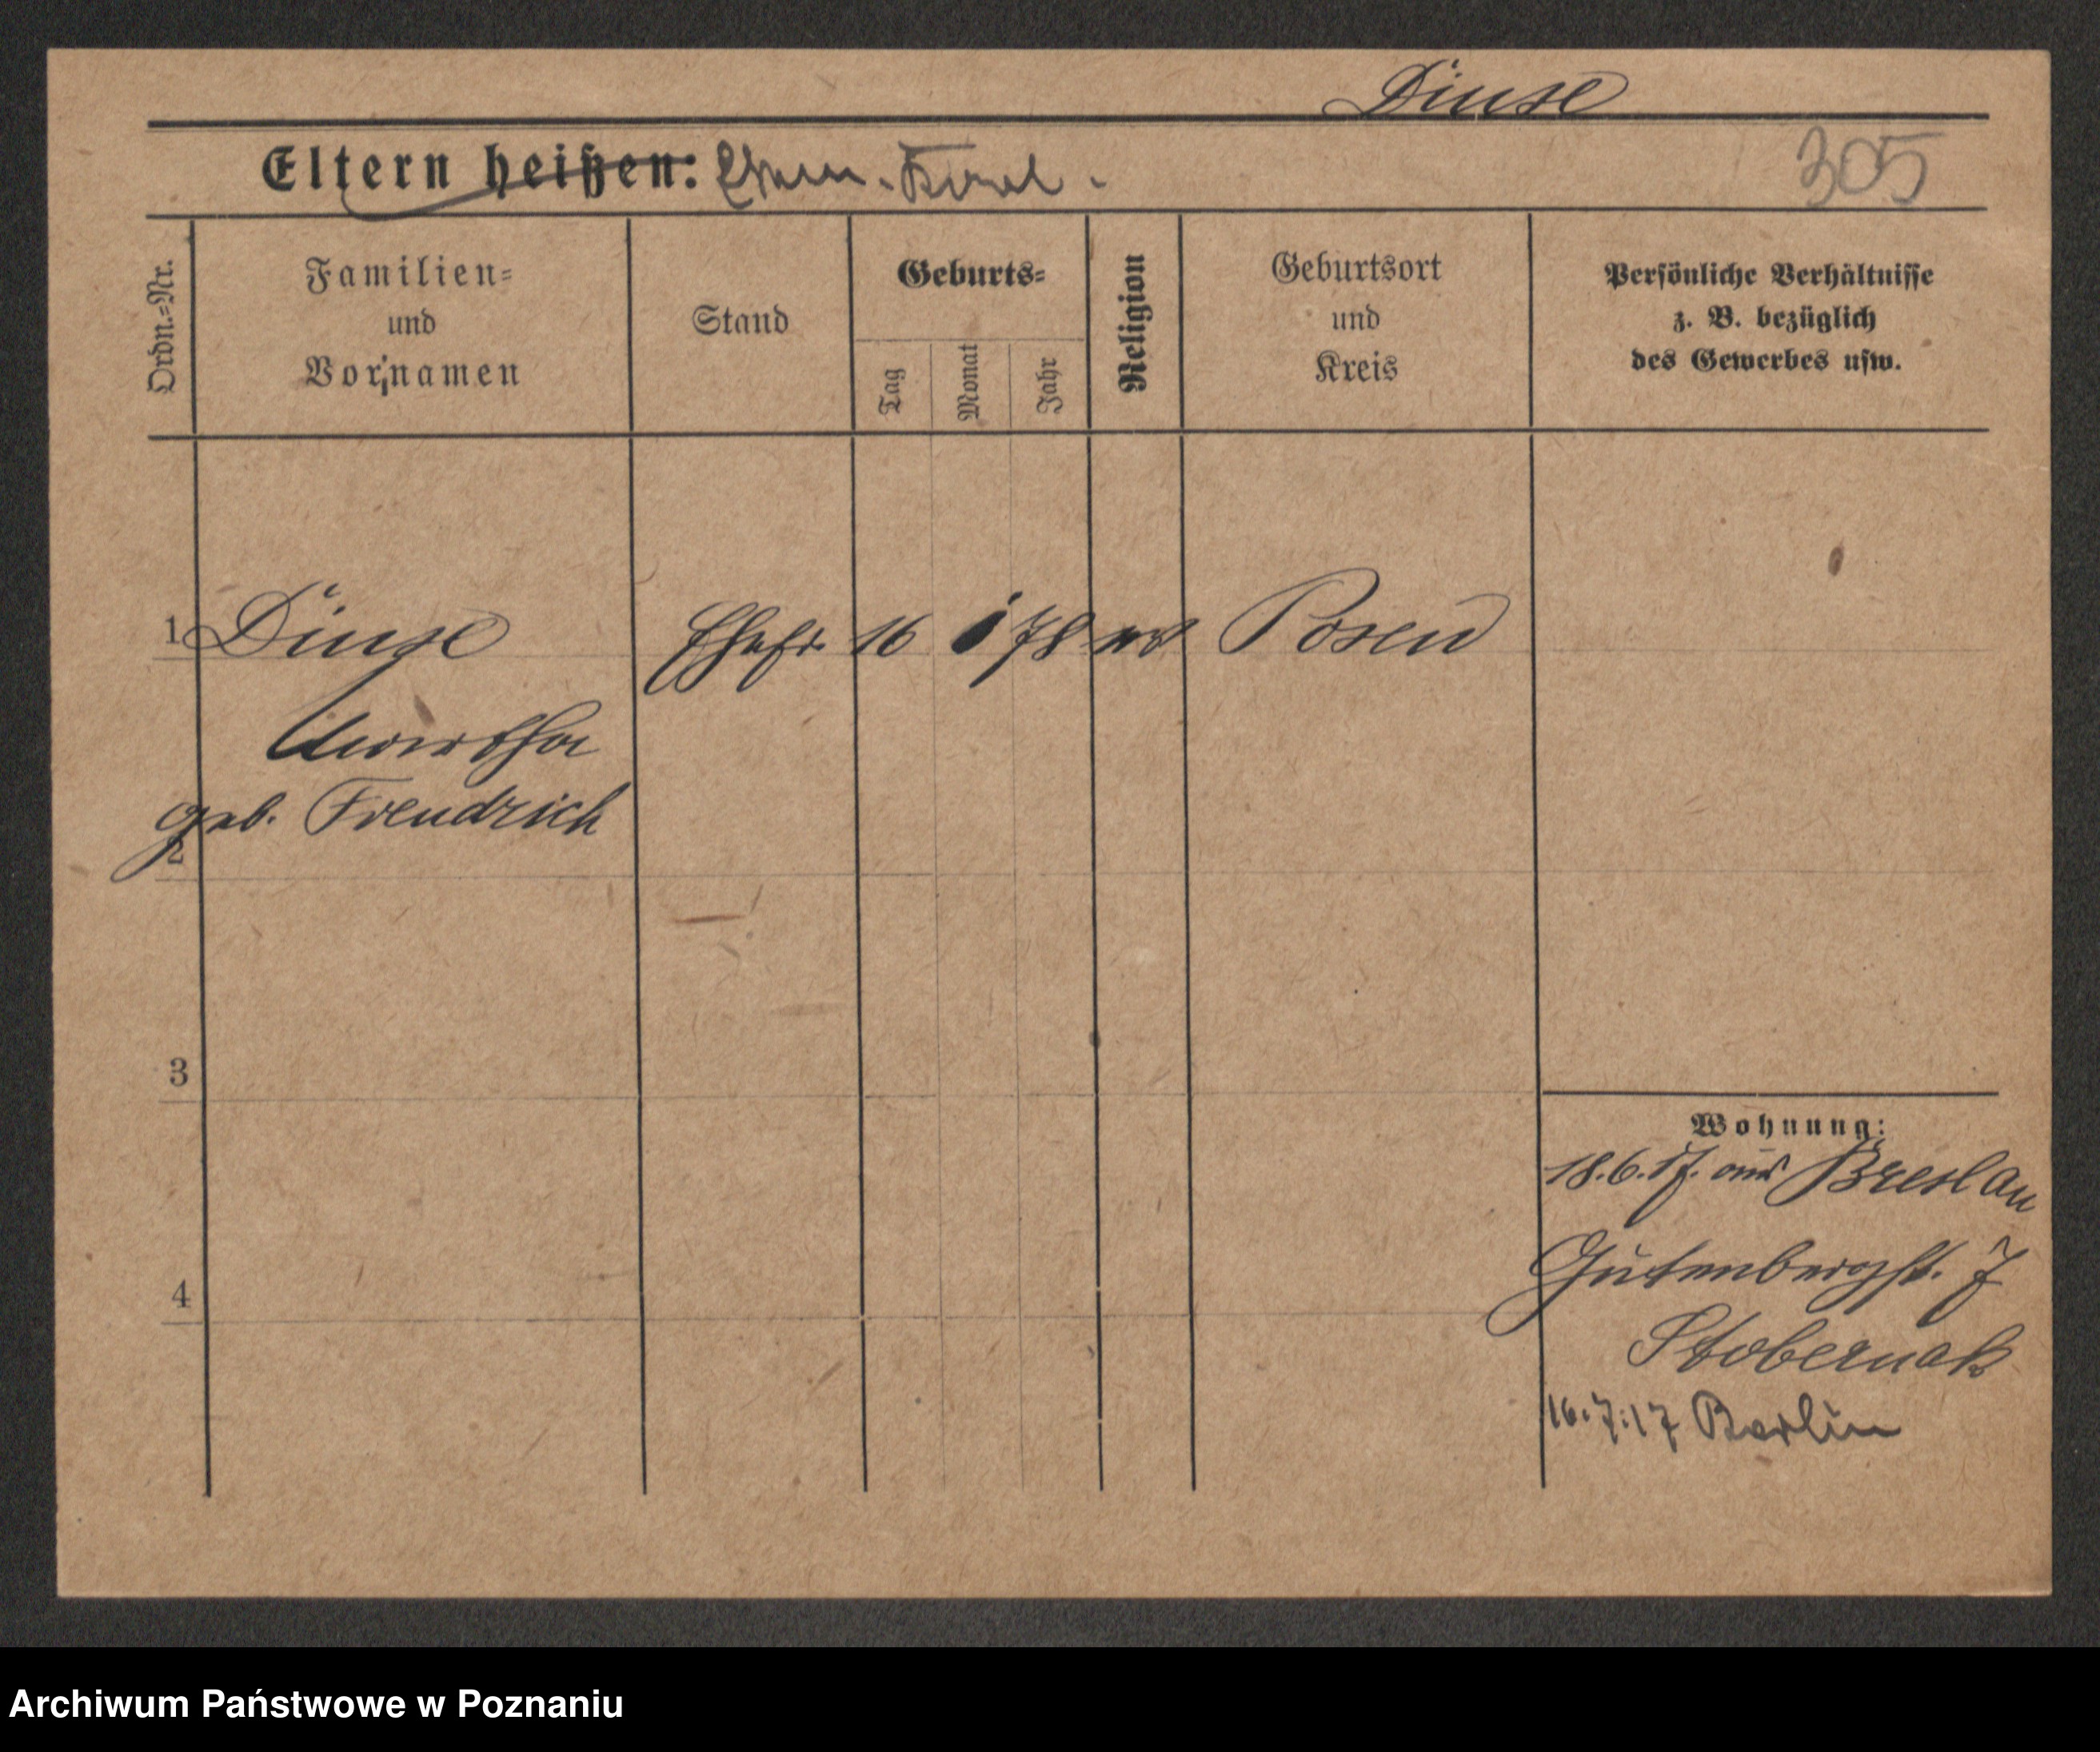 Dinse
Eltern heißen: Karl.
305
Ordn.=Nr.
Familien=
und
Vornamen
Stand
Geburts=
Tag
Monat
Jahr
Religion
Geburtsort
und
Kreis
Persönliche Verhältnisse
z. B. bezüglich
des Gewerbes usw.
1 Dinse Ehefr. 16 78 Posen
Martha
geb. Freudrich
2
3
4
Wohnung:
18.6.17. aus Breslau
Gutenbergst. 7
Stobernak
16.7.17 Berlin
Archiwum Państwowe w Poznaniu